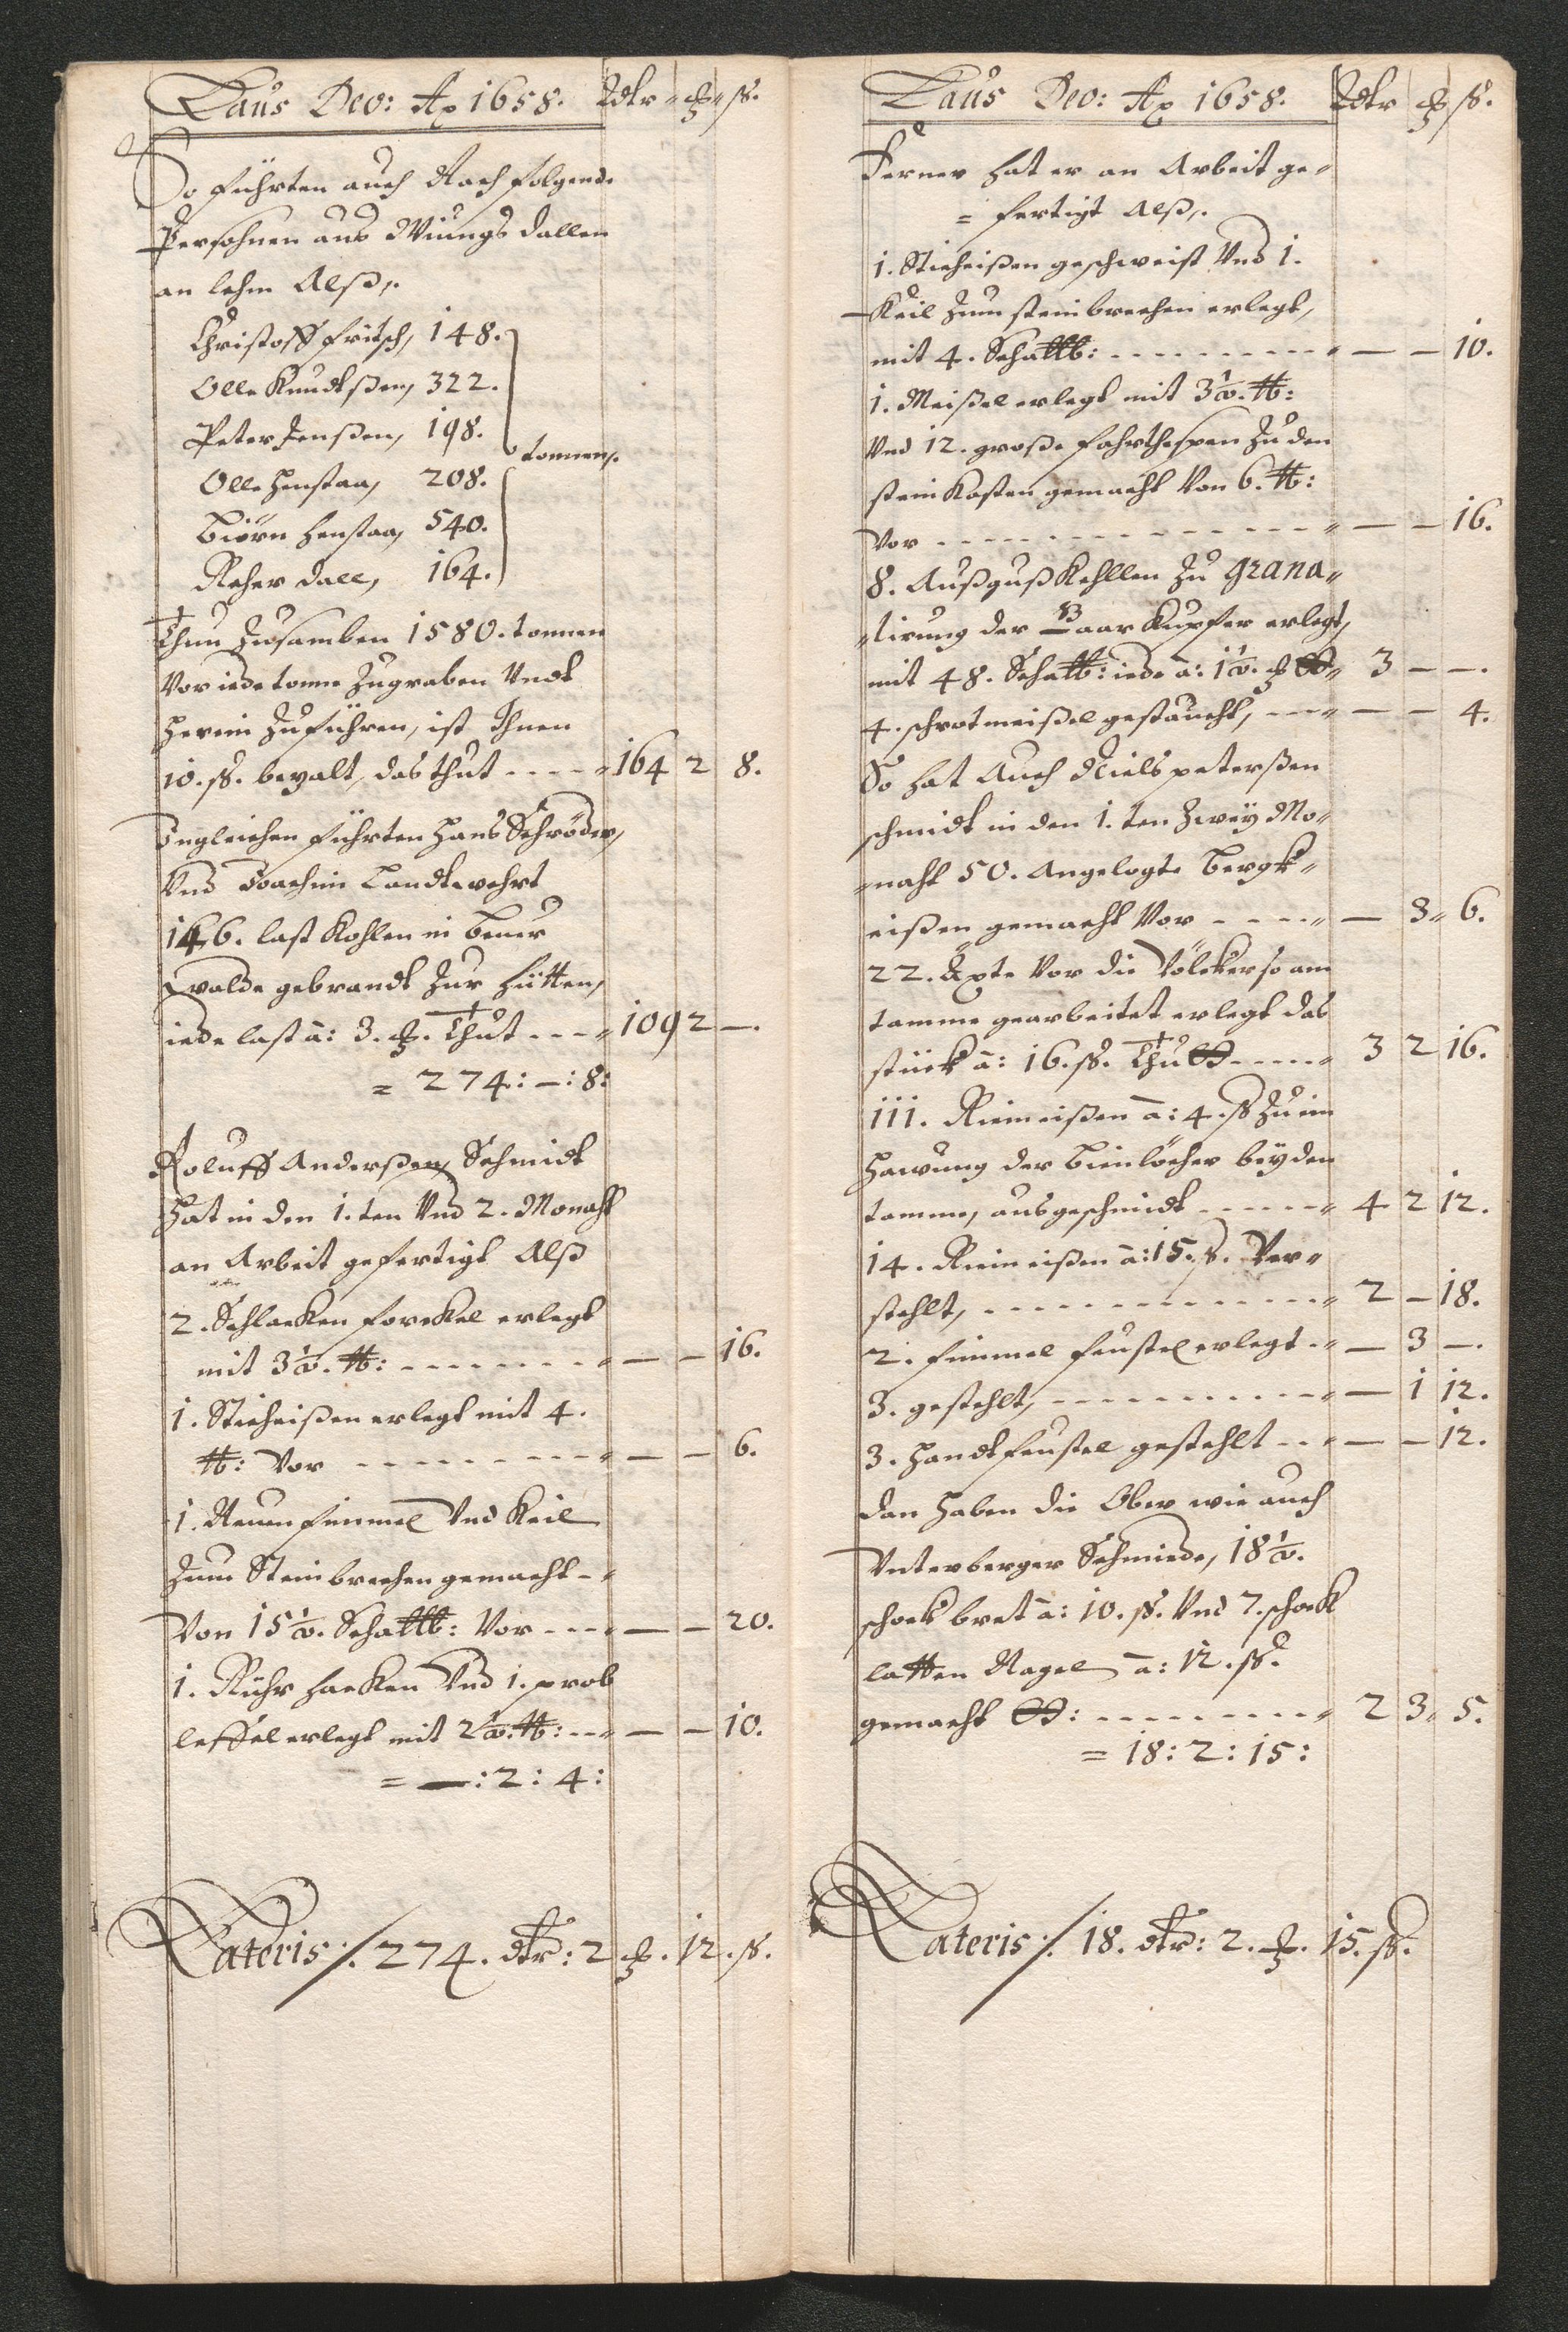 Laus Deo: Ao 1658. Rdlr ß.
So führten auch Nach folgende
Persohnen aus Miungs dallen
an lehm Alß,.
Christoff fritsch, 148.
Olle Knudtßen, 322.
Peter Jenßen, 198.
tonnen,.
Olle Henstaa, 208.
Biörn Henstaa, 540.
Reher dall, 164.
Thun Zusamben 1580. tonnen
Vor iede tonne Zugraben Undt
Herein Zuführen, ist Ihnen
10. ß. bezalt, das thut - - - - 164 2 8.
Ingleichen führten Hans Schröder,
Und Joachim Landtwehrt
146. last Kohlen in
walde gebrandt Zur Hütten,
iede last a: 3. Thut - - - 109 2 -.
= 274: -: 8:
Roluff Anderßen, Schmidt
Hat in den 1. ten Und 2. Monaht
an Arbeit gefertigt Alß
2. Schlacken forckel erlegt
mit 3½. ℔: - - - - - - - - - 16.
1. Sticheißen erlegt mit 4.
℔: Vor - - - - - - - - - - 6.
1. Neuen fimmel Und Keil
Zum Steinbrechen gemacht - -
Von 15½. Scha℔: Vor - - - - - 20.
1. Rühr hacken Und 1. prob
leffel erlegt mit 2½. ℔: - - - - 10.
= -: 2: 4:
Lateris ./. 274. dlr: 2 . 12. ß.
Laus Deo: Ao 1658. Rdlr ß.
Ferner hat er an Arbeit ge-
= fertigt Alß,.
1. Sticheißen geschweist Und 1.
Keil Zum steinbrechen erlegt,
mit 4. Scha℔: - - - - - - - - - - 10.
1. Meißel erlegt mit 3½. ℔:
Und 12. große fahrthespen Zu den
stein Kasten gemacht Von 6. ℔:
Vor - - - - - - - - - - - - 16.
8. Außguß Kehllen Zu Grana-
-tirung der Gaar Kupfer erlegt,
mit 48. Scha℔: iede a: 1½. 3 - -.
4. schrotmeißel gestaucht, - - - - - 4.
So hat Auch Niels peterßen
schmidt in den 1. ten Zweÿ Mo-
-naht 50. Angelogte Bergk-
eißen gemacht Vor - - - - - 3 6.
22. Äxte Vor die Völcker so am
tamme gearbeitet erlegt das
stück a: 16. ß. Thutt - - - - 3 2 16.
111. Riem eißen a: 4. ß Zu ein
Hawung der Bienlöcher beÿ den
tamme, ausgeschmidt - - - - - 4 2 12.
14. Riem eißen a: 15. ß. Ver-
stehlt, - - - - - - - - - - - 2 - 18.
2. fimmel feustel erlegt - - - 3 -.
3. gestehlt, - - - - - - - - - - 1 12.
3. Handt feustel gestehlt - - - - 12.
dan Haben die Ober wie auch
Unterberger Schmiede, 18½.
schock bret a: 10. ß. Und 7. schock
latten Nagel a: 12. ß.
gemacht tt: - - - - - - - - - 2 3 5.
= 18: 2: 15:
Lateris ./. 18. dlr: 2. . 15. ß.